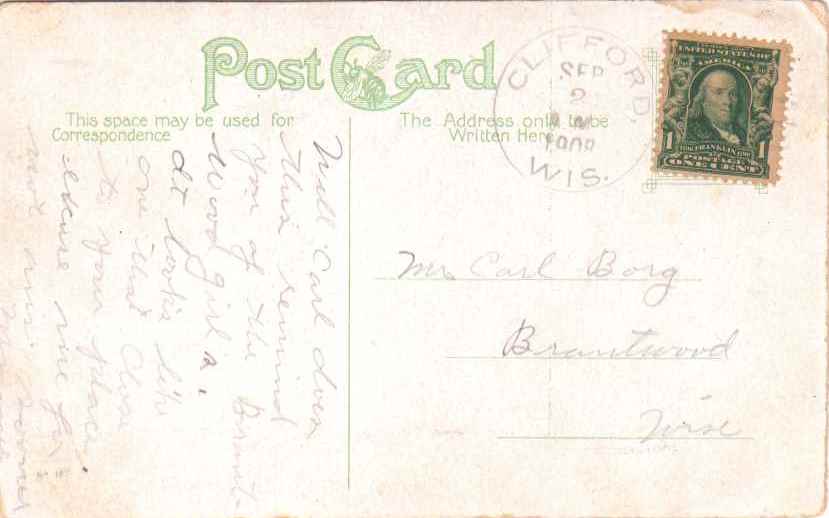 Post Card
This space may be used for
Correspondence
The Address only to be
Written Here
CLIFFORD,
SEP
2
WIS.
UNITED STATES OF
AMERICA
FRANKLIN
POSTAGE
1 ONE CENT 1
Mr Carl Borg
Brantwood
Wise
Well Carl does
this remind
you of the Brant-
wood girls.
it looks like
one that close
to your place.
excuse me for
not sooner